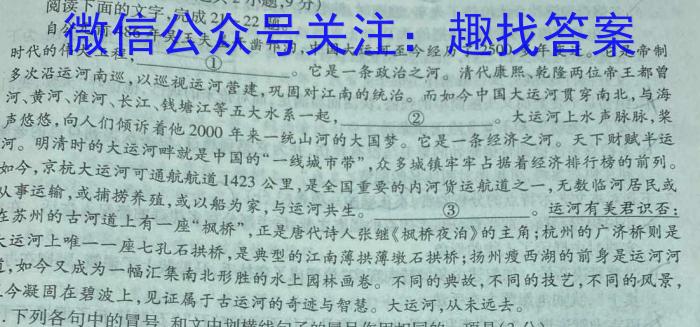 阅读下面的文字,完成21~22题。
微信公众号关注：趣找答案
时代的伟大工程,①。它是一条政治之河。清代康熙、乾隆两位帝王都曾
多次沿运河南巡,以巡视运河营建,巩固对江南的统治。而如今中国大运河贯穿南北,与海
河、黄河、淮河、长江、钱塘江等五大水系一起,②。大运河上水声脉脉,桨
声悠悠,向人们倾诉着他2000年来一统山河的大国梦。它是一条经济之河。天下财赋半运
河。明清时的大运河畔就是中国的“一线城市带”,众多城镇牢牢占据着经济排行榜的前列。
如今,京杭大运河可通航航道1423公里,是全国重要的内河货运航道之一,无数临河居民或
从事运输,或捕捞养殖,或以船为家,与运河共生。③。运河有美君识否:
在苏州的古河道上有一座“枫桥”,正是唐代诗人张继《枫桥夜泊》的主角;杭州的广济桥则是
大运河上唯一一座七孔石拱桥,是典型的江南薄拱薄墩石拱桥;扬州瘦西湖的前身是运河河
道,如今又成为一幅汇集南北形胜的水上园林画卷。不同的典故,不同的技艺,不同的风景,
今凝固在碧波上,见证属于古运河的奇迹与智慧。大运河,从未远去。
下列各句中的冒号,和文中划横线句子的冒号作用相同的一项是(3分)